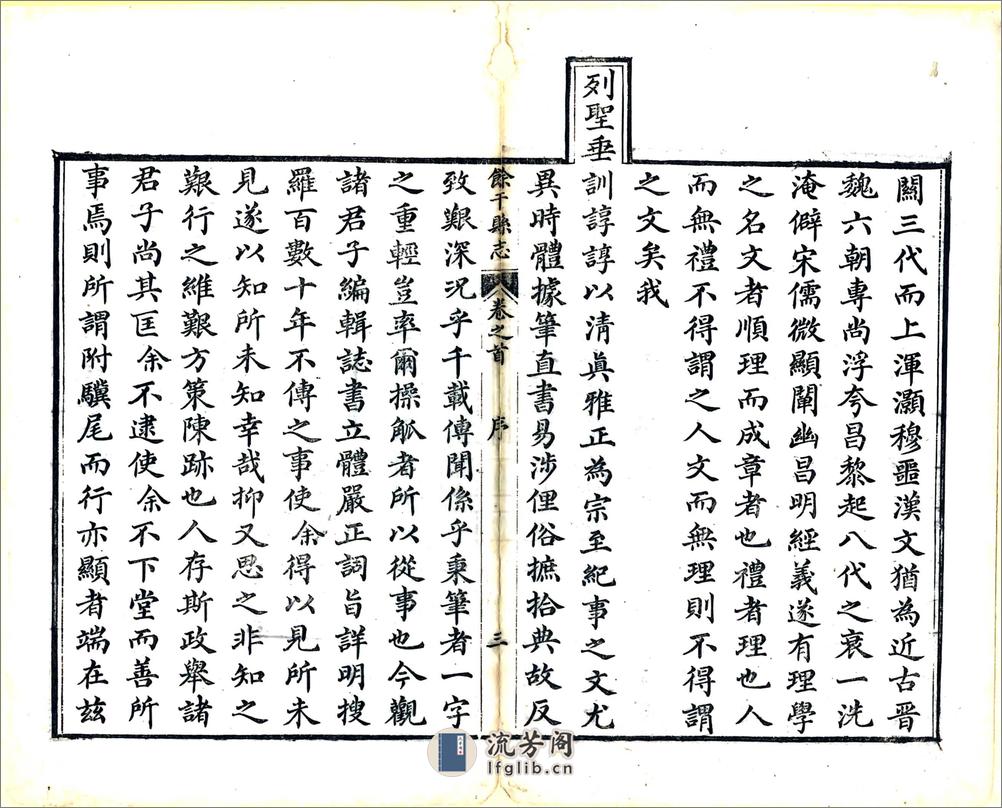 闗三代而上渾灝穆噩漢文猶為近古晋
魏六朝專尚浮夸昌黎起八代之衰一洗
淹僻宋儒微顯闡幽昌明經義遂有理學
之名文者順理而成章者也禮者理也人
而無禮不得謂之人文而無理則不得謂
之文矣我
列聖垂訓諄諄以清眞雅正為宗至紀事之文尤
異時體據筆直書易涉俚俗摭拾典故反
餘干縣志
卷之首
序
三
致艱深況乎千載傳聞係乎秉筆者一字
之重輕豈率爾操觚者所以從事也今觀
諸君子編輯誌書立體嚴正詞旨詳明搜
羅百數十年不傳之事使余得以見所未
見遂以知所未知幸哉抑又思之非知之
艱行之維艱方策陳跡也人存斯政舉諸
君子尚其匡余不逮使余不下堂而善所
事焉則所謂附驥尾而行亦顯者端在茲
流芳阁
lfglib.cn